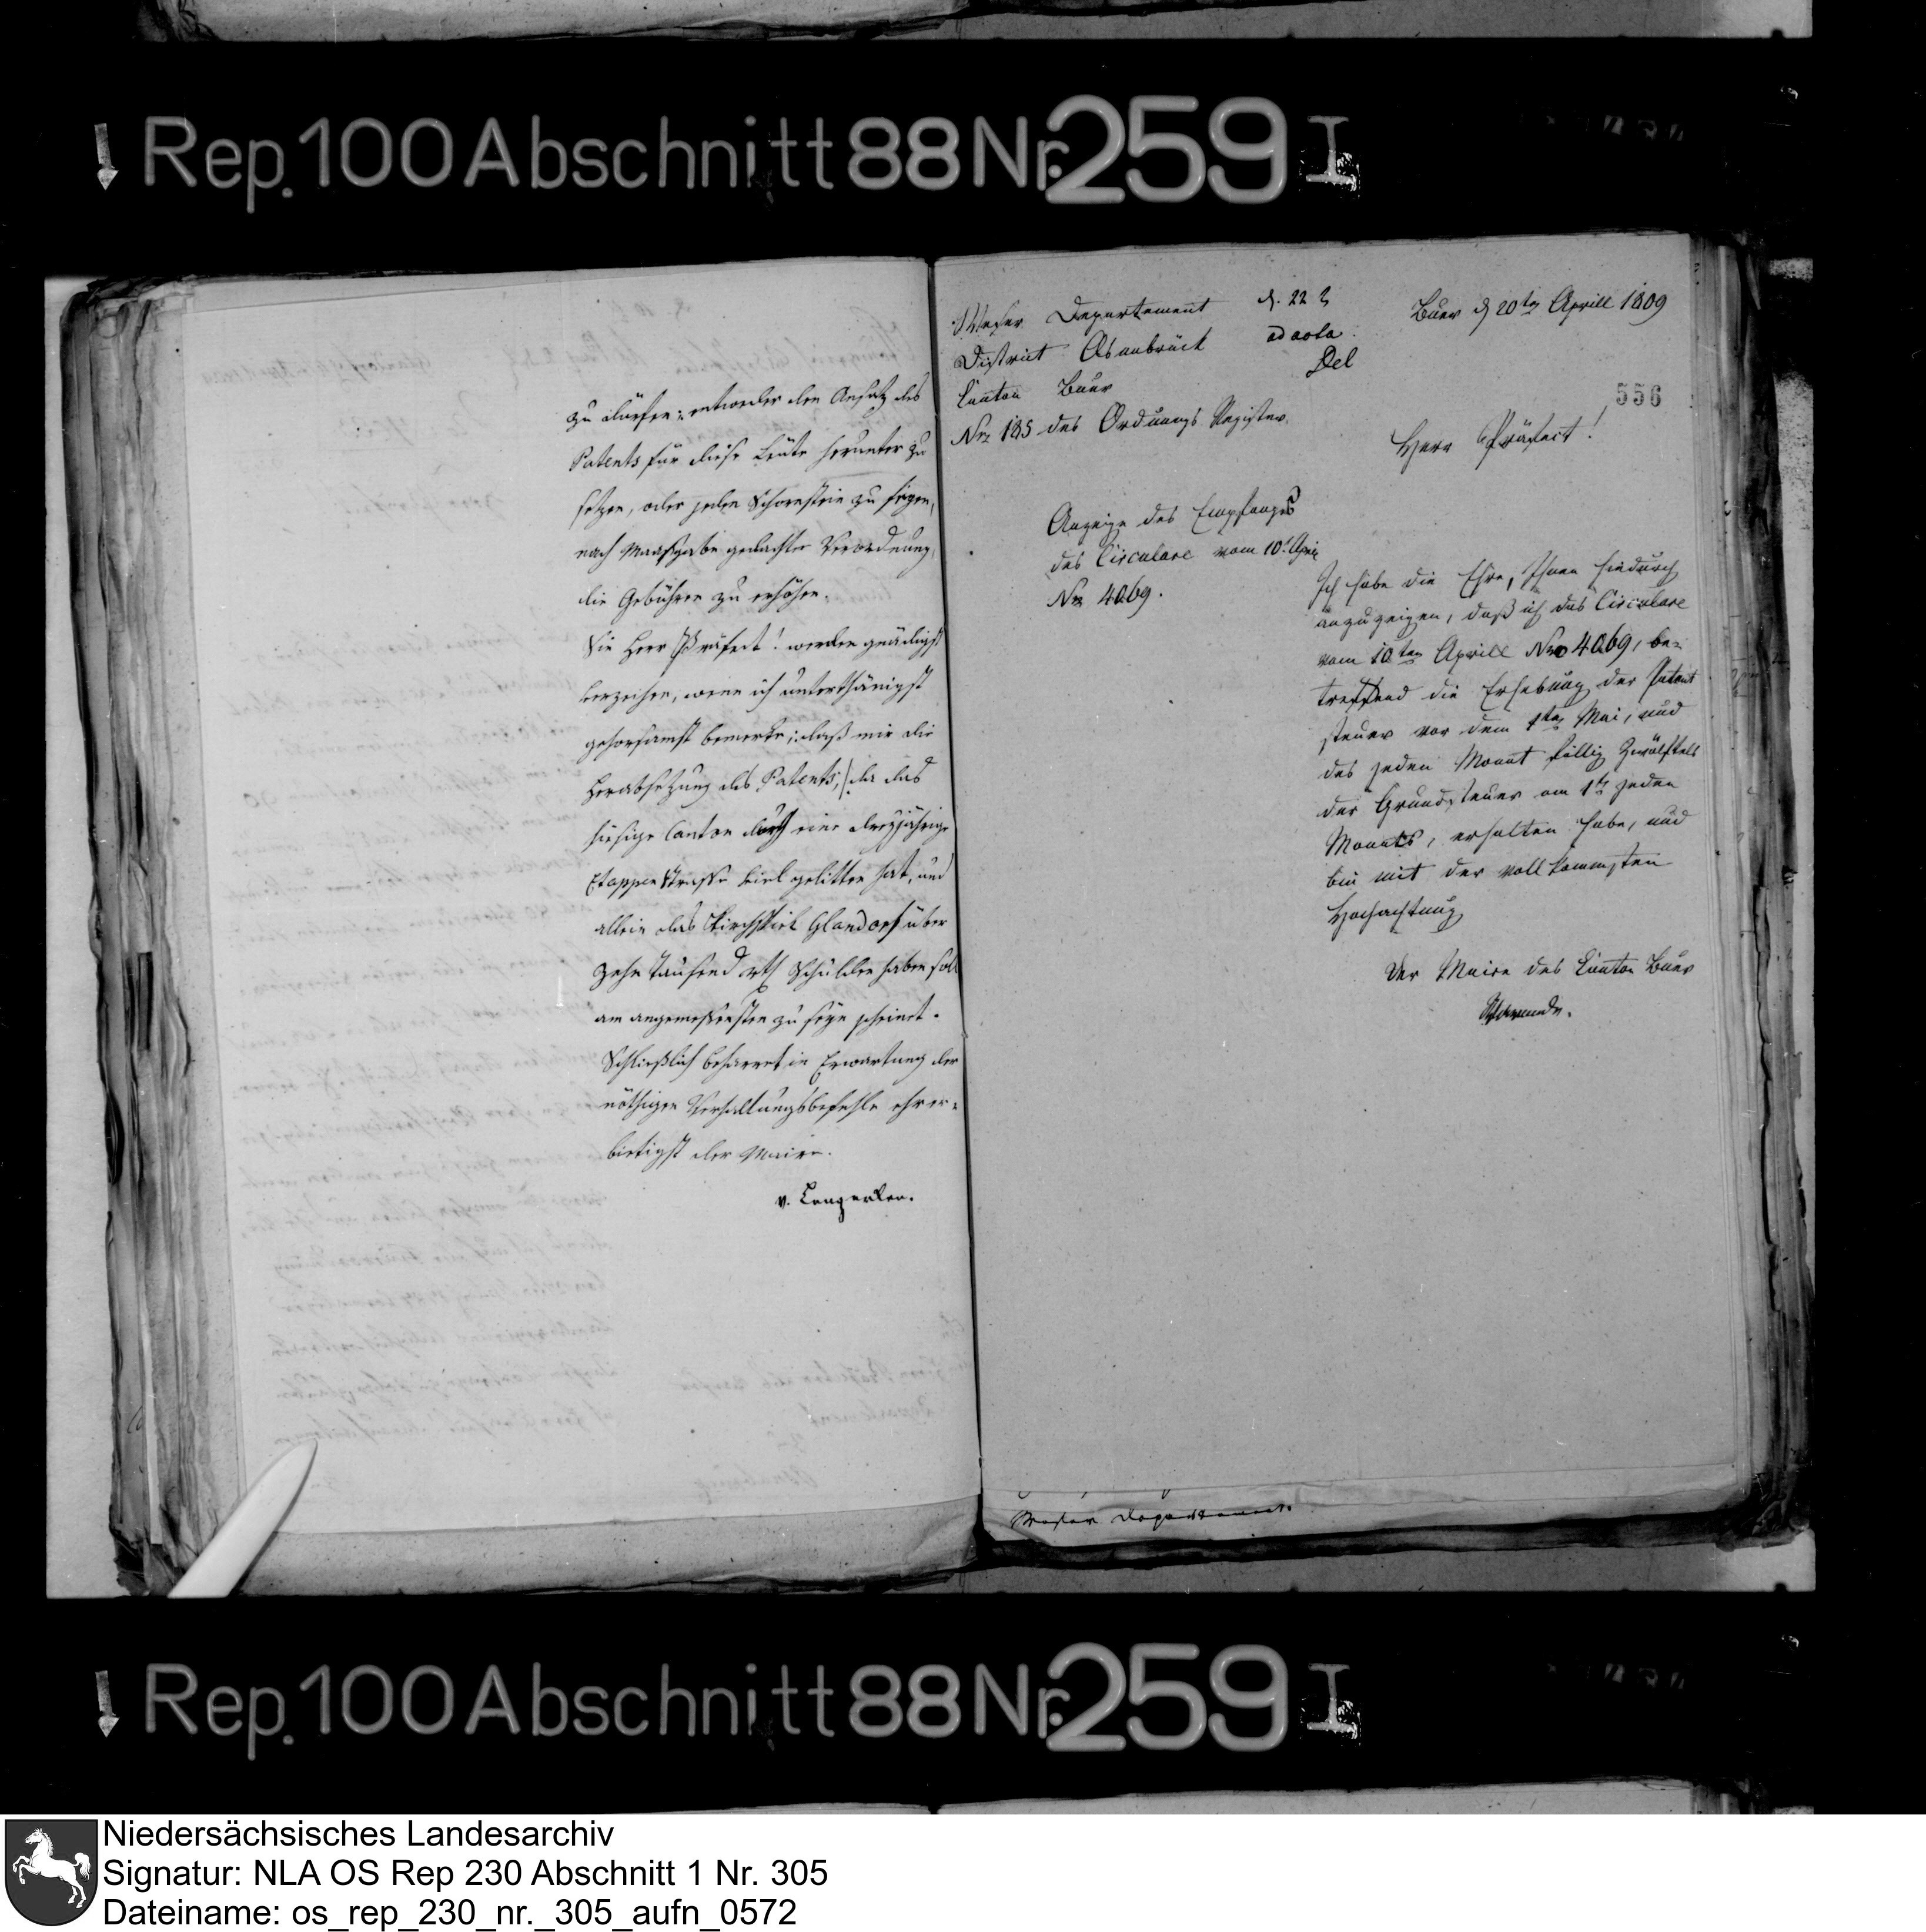 Rep. 100 Abschnitt 88 Nr. 259 I
zu dürfen: entweder den Ansatz des
Patents für diese Leute herunter zu
setzen, oder jeden Schornstein zu fegen,
nach Maaßgabe gedachter Verordnung,
die Gebühren zu erhöhen.
Sie Herr Präfect! werden gnädigst
verzeihen, wenn ich unterthänigst
gehorsamst bemerke: daß mir die
Herabsetzung des Patents, da das
hiesige Canton durch eine dreyjährige
Etappen Straße viel gelitten hat, und
allein das Kirchspiel Glandorf über
zehn Tausend rth Schulden haben soll
am angemeßensten zu seyn scheinet.
Schließlich beharret in Erwartung der
nöthigen Verhaltungsbefehle ehrer-
bietigst der Maire.
v. Lengerken.
Weser Departement
District Osnabrück
Canton Buer
Nro 185 des Ordnungs Register
d. 22
ad acta
Del
Buer d 20ten Aprill 1809
556
Herr Präfect!
Anzeige des Empfanges
des Circulare vom 10t April
Nro 4069.
Ich habe die Ehre, Ihnen hiedurch
anzuzeigen, daß ich das Circulare
vom 10ten Aprill Nro 4069, be-
treffend die Erhebung der Patent
steuer vor dem 1ten Mai, und
des jeden Monat fällig Zwölftels
der Grundsteuer am 1ten jeden
Monats, erhalten habe, und
bin mit der vollkommsten
Hochachtung
Der Maire des Canton Buer
Weser Departement.
Rep. 100 Abschnitt 88 Nr. 259 I
Niedersächsisches Landesarchiv
Signatur: NLA OS Rep 230 Abschnitt 1 Nr. 305
Dateiname: os_rep_230_nr._305_aufn_0572